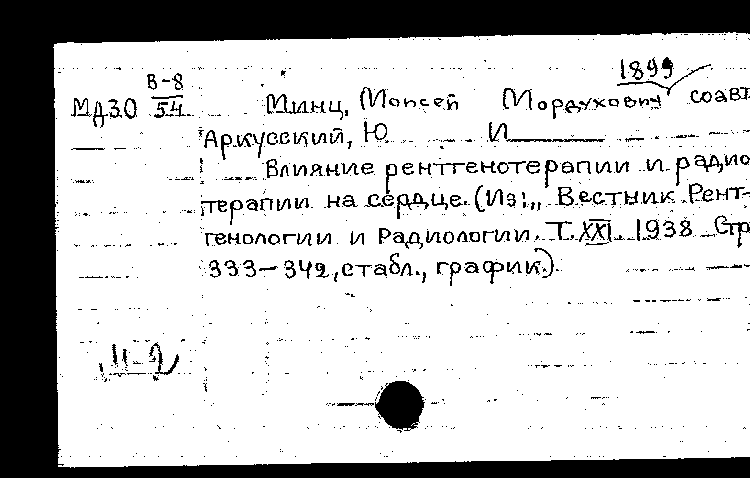 1899
В-8
МДЗО 54 Минц, Моисей Мордухович соавт
Аркусский, Ю И
Влияние рентгенотерапии и радио
терапии на сердце. (Из: „Вестник Рент-
генологии и Радиологии. Т. XXI. 1938 Стр
333-342, с табл., график.).